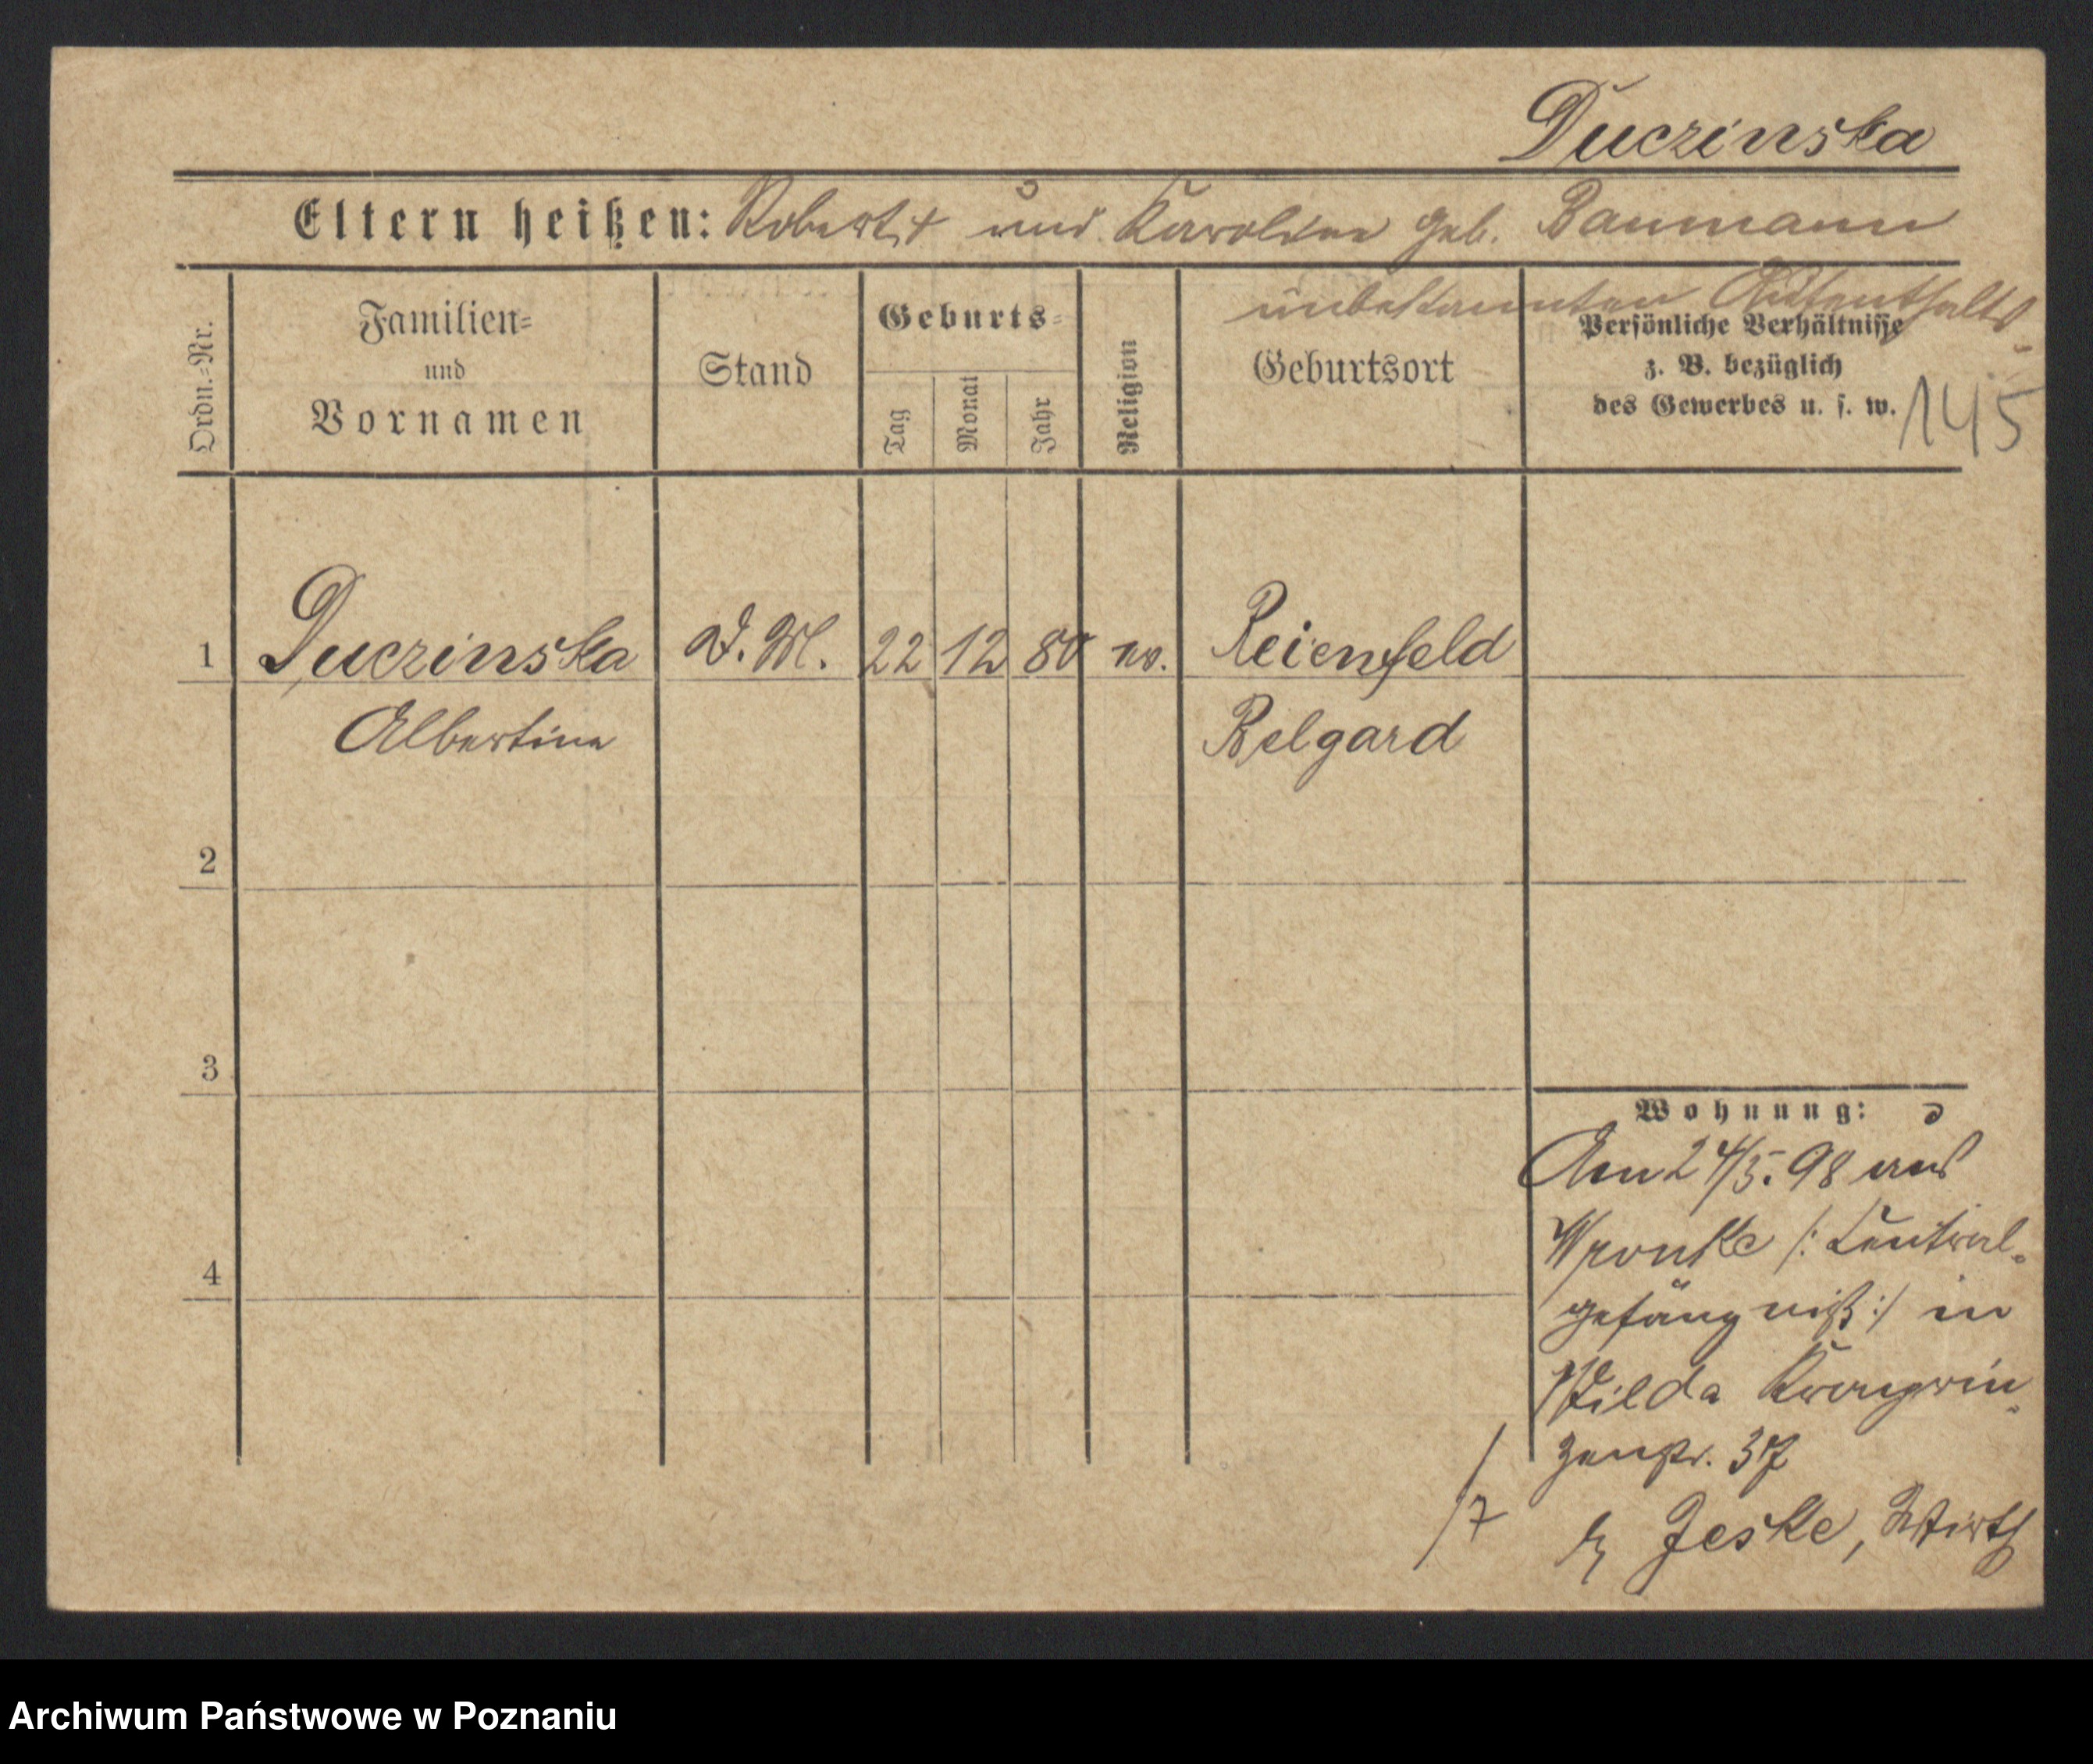 Duczinska
Eltern heißen: Robert † und Karoline geb. Baumann
unbekannten Aufenthalts
Ordn.-Nr.
Familien-
und
Vornamen
Stand
Geburts-
Tag
Monat
Jahr
Religion
Geburtsort
Persönliche Verhältnisse
z. B. bezüglich
des Gewerbes u. s. w.
145
1 Duczinska D. M. 22 12 80 ev. Reienfeld
Albertine Belgard
2
3
4
Wohnung:
Am 24/5. 98 aus
Wronke /: Central-
gefängniß :/ in
Wilda Kronprin-
zenstr. 37
Jeske, Wirth